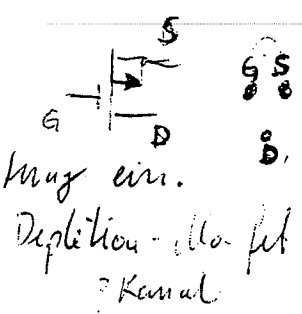 S
G S
G
D
D.
ein.
Depletion-Mo fet
? Kanal